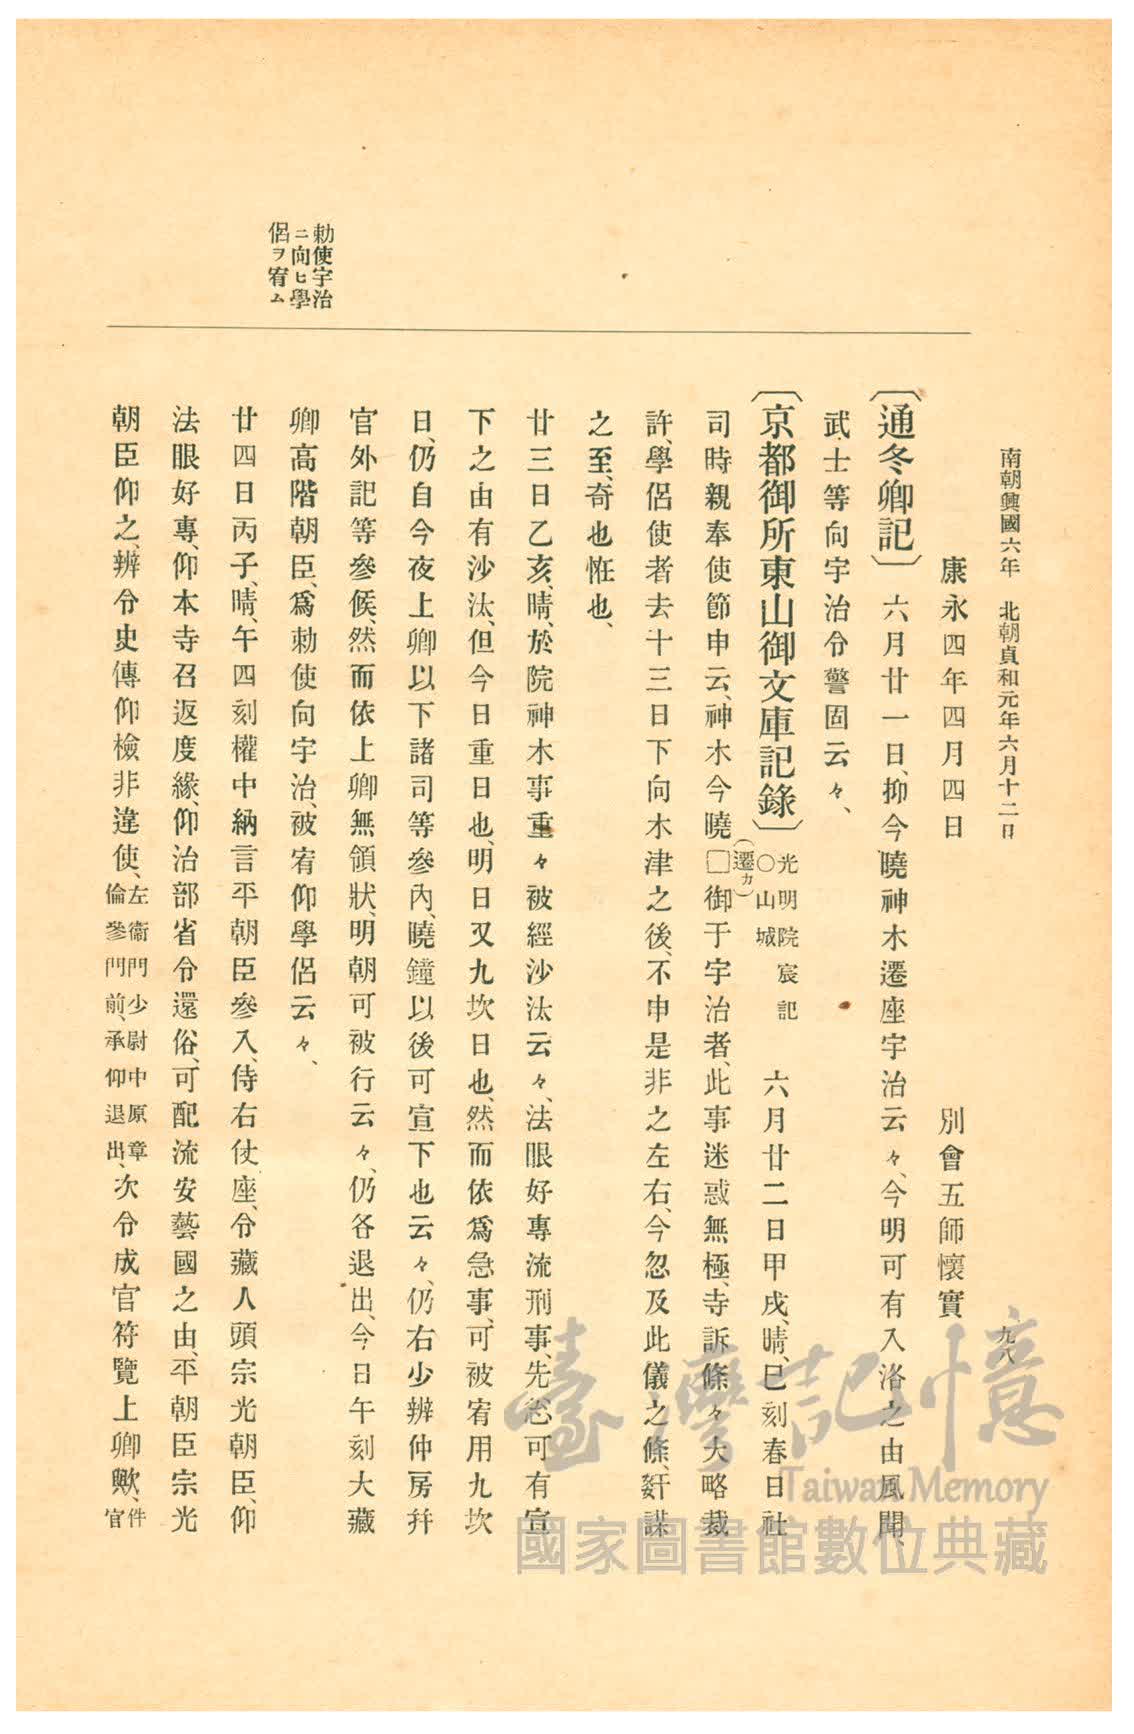 南朝興國六年　北朝貞和元年六月十二日
九八
康永四年四月四日　別會五師懷實
〔通冬卿記〕六月廿一日、抑今曉神木遷座宇治云々、今明可有入洛之由風聞、
武士等向宇治令警固云々、
〔京都御所東山御文庫記錄〕光明院宸記○山城　六月廿二日甲戌、晴、巳刻春日社
司時親奉使節申云、神木今曉□(遷カ)御于宇治者、此事迷惑無極、寺訴條々大略裁
許、學侶使者去十三日下向木津之後、不申是非之左右、今忽及此儀之條、奸謀
之至、奇也恠也、
廿三日乙亥、晴、於院神木事重々被經沙汰云々、法眼好專流刑事、先忩可有宣
下之由有沙汰、但今日重日也、明日又九坎日也、然而依爲急事、可被宥用九坎
日、仍自今夜上卿以下諸司等參內、曉鐘以後可宣下也云々、仍右少辨仲房幷
官外記等參候、然而依上卿無領狀、明朝可被行云々、仍各退出、今日午刻大藏
卿高階朝臣、爲勅使向宇治、被宥仰學侶云々、
勅使宇治
ニ向ヒ學
侶ヲ宥ム
廿四日丙子、晴、午四刻權中納言平朝臣參入、侍右仗座、令藏人頭宗光朝臣、仰
法眼好專、仰本寺召返度緣、仰治部省令還俗、可配流安藝國之由、平朝臣宗光
朝臣仰之、辨令史傳仰檢非違使、左衞門少尉中原章倫參門前、承仰退出、次令成官符覽上卿歟、件官
臺灣記憶
Taiwan Memory
國家圖書館數位典藏